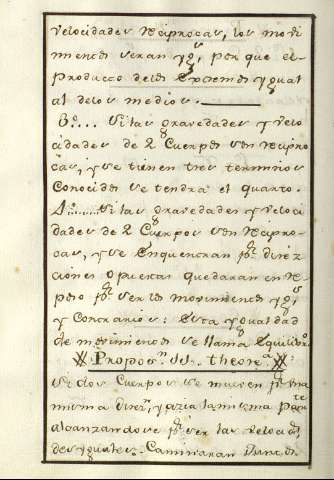 velocidades reciprocas, los movi
mientos seran yg.s, por que el
Producto delos Extremos ygual
al delos medios.
3.o.... Si las gravedades y velo
cidades de 2 Cuerpos son recipro
cas, y se tienen tres terminos
Conocidos se tendra el quarto.
4.o.... Si las gravedades y veloci
dades de 2 Cuerpos son recipro
cas, y se Enquentran p.r direz
ciones opuestas quedaran en re
poso p.r ser los movimientos yg.s
y Contrarios: Esta ygualdad
de movimientos se llama Equilibr.o
Propos.n theor.a
Si dos Cuerpos se mueven p.r una
misma direz.n y azia la misma parte
alcanzandose p.r ser las velocid.s
desyguales. Caminaran